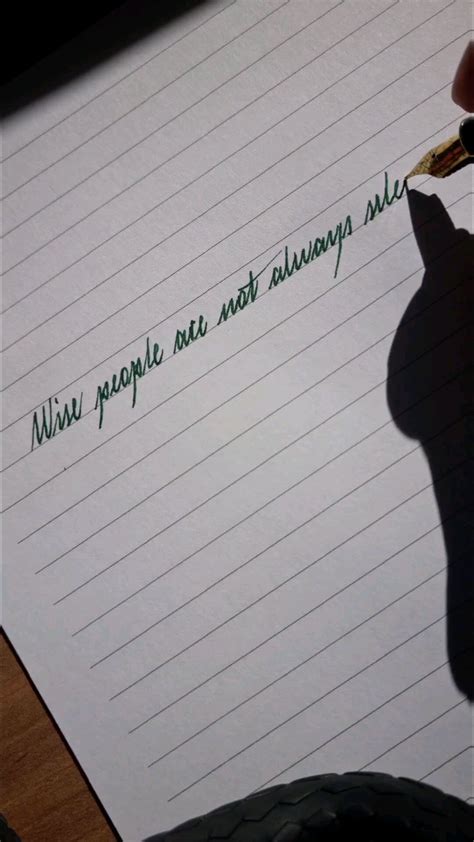 Wise people are not always sile